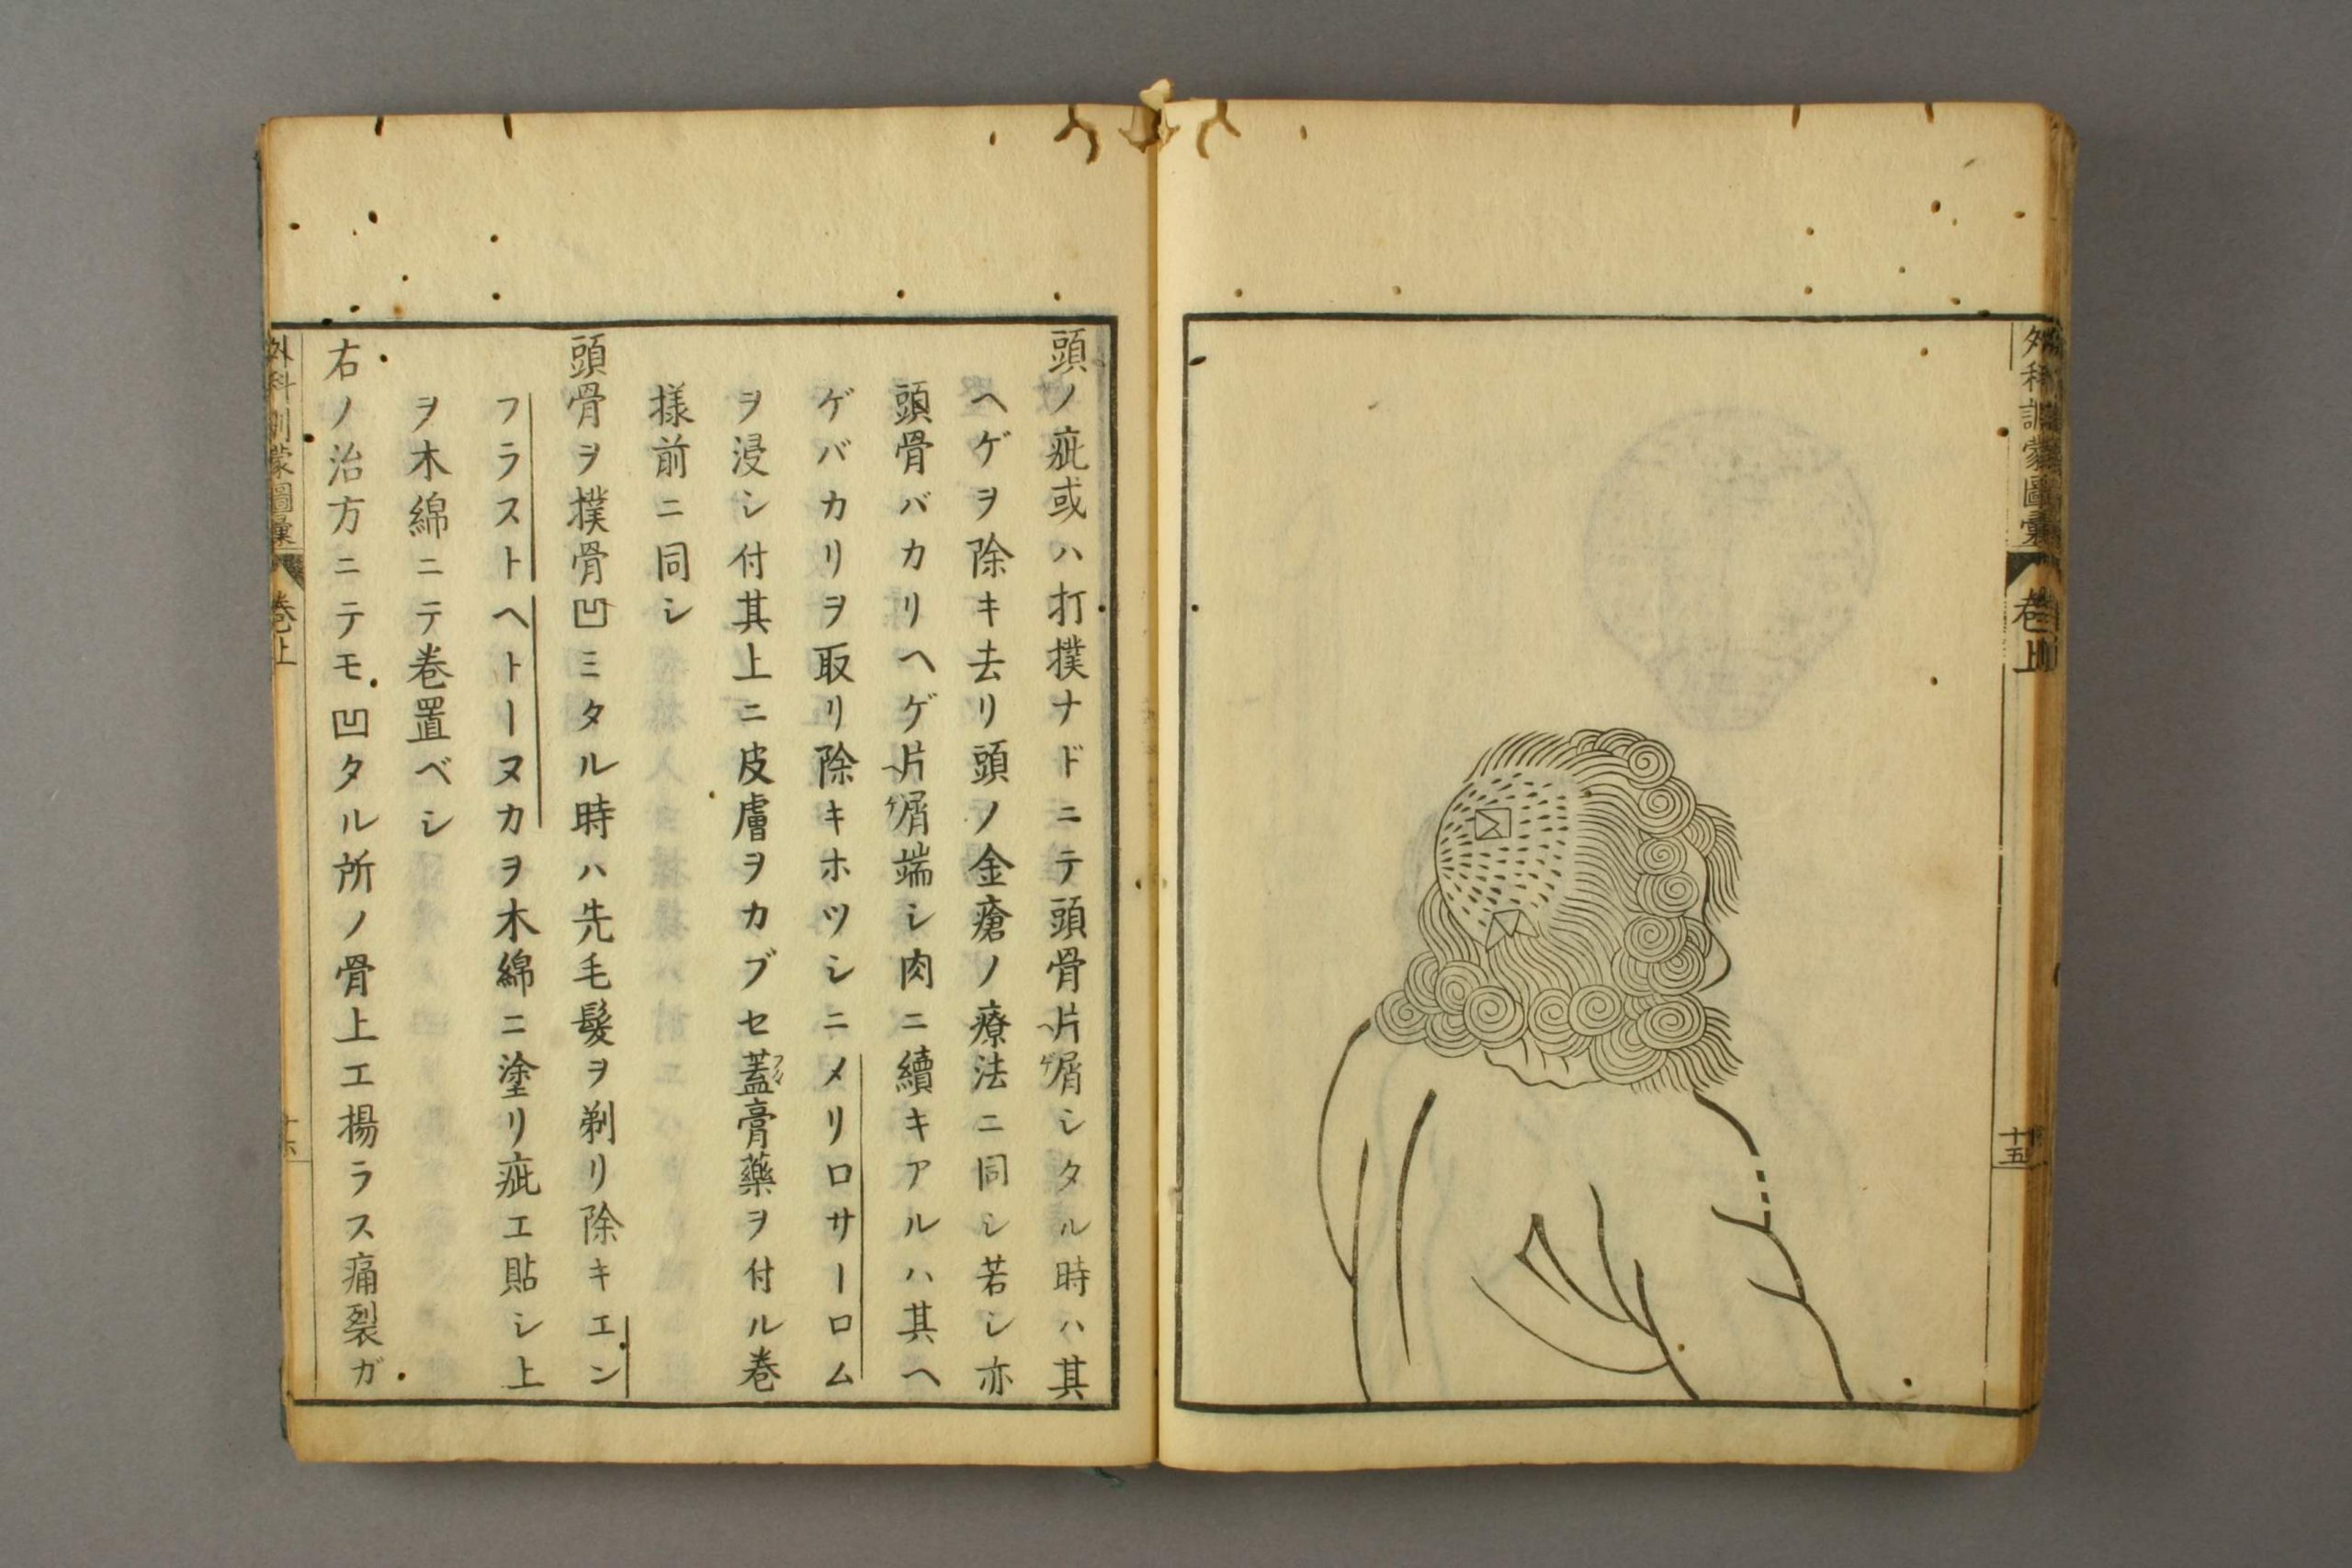 外科訓蒙圖彙
卷上
十五
頭ノ疵或ハ打撲ナドニテ頭骨片屑シタル時ハ其
ヘゲ
ヘゲヲ除キ去リ頭ノ金瘡ノ療法ニ同シ若シ亦
頭骨バカリヘゲ片屑端シ肉ニ續キアルハ其ヘ
ヘゲ
ゲバカリヲ取リ除キホツシニメリロサーロム
ヲ浸シ付其上ニ皮膚ヲカブセ蓋膏藥ヲ付ル卷
樣前ニ同シ
頭骨ヲ撲骨凹ミタル時ハ先毛髮ヲ剃リ除キエン
フラストヘトーヌカヲ木綿ニ塗リ疵エ貼シ上
ヲ木綿ニテ卷置ベシ
右ノ治方ニテモ凹タル所ノ骨上エ揚ラス痛裂ガ
外科訓蒙圖彙
卷上
十六